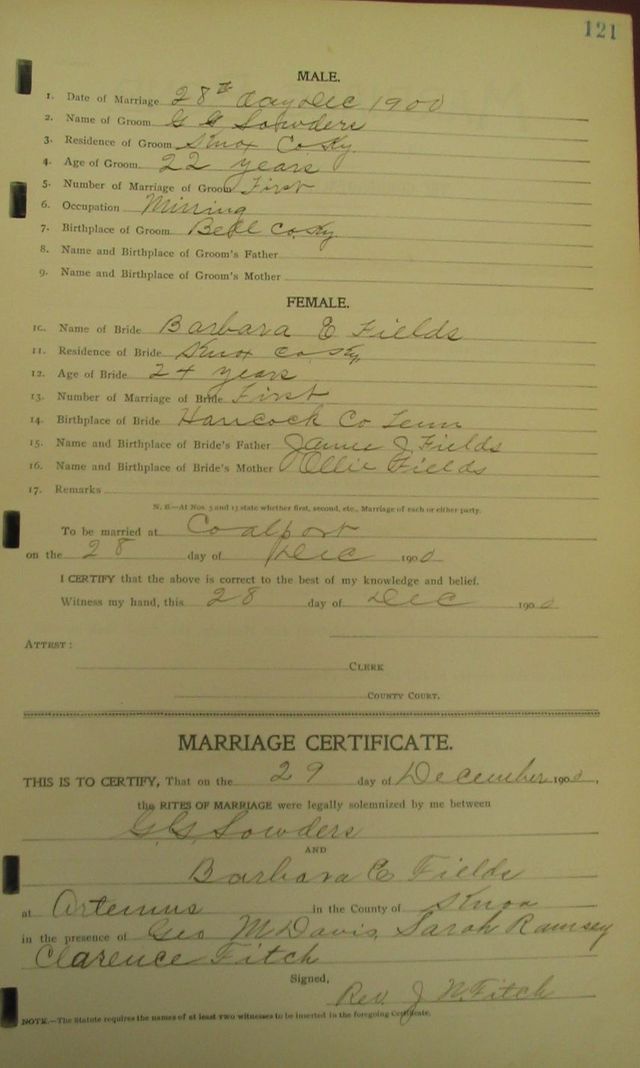 121
MALE.
1. Date of Marriage 28th day Dec 1900
2. Name of Groom G G Sowders
3. Residence of Groom Knox Co Ky
4. Age of Groom 22 years
5. Number of Marriage of Groom First
6. Occupation Mining
7. Birthplace of Groom Bell Co. Ky
8. Name and Birthplace of Groom's Father
9. Name and Birthplace of Groom's Mother
FEMALE.
10. Name of Bride Barbara E Fields
11. Residence of Bride Knox Co Ky
12. Age of Bride 24 years
13. Number of Marriage of Bride First
14. Birthplace of Bride Hancock Co Tenn
15. Name and Birthplace of Bride's Father J Fields
16. Name and Birthplace of Bride's Mother Ollie Fields
17. Remarks
N. B.—At Nos. 5 and 13 state whether first, second, etc., Marriage of each or either party.
To be married at Coalport
on the 28 day of Dec 1900
I CERTIFY that the above is correct to the best of my knowledge and belief.
Witness my hand, this 28 day of Dec 1900
ATTEST:
CLERK
COUNTY COURT.
MARRIAGE CERTIFICATE.
THIS IS TO CERTIFY, That on the 29 day of December 1900,
the RITES OF MARRIAGE were legally solemnized by me between
G. G. Sowders
AND
Barbara E Fields
at Artemus in the County of Knox
in the presence of Geo M Davis, Sarah Ramsey
Clarence Fitch
Signed,
Rev. J N. Fitch
NOTE.—The Statute requires the names of at least two witnesses to be inserted in the foregoing Certificate.